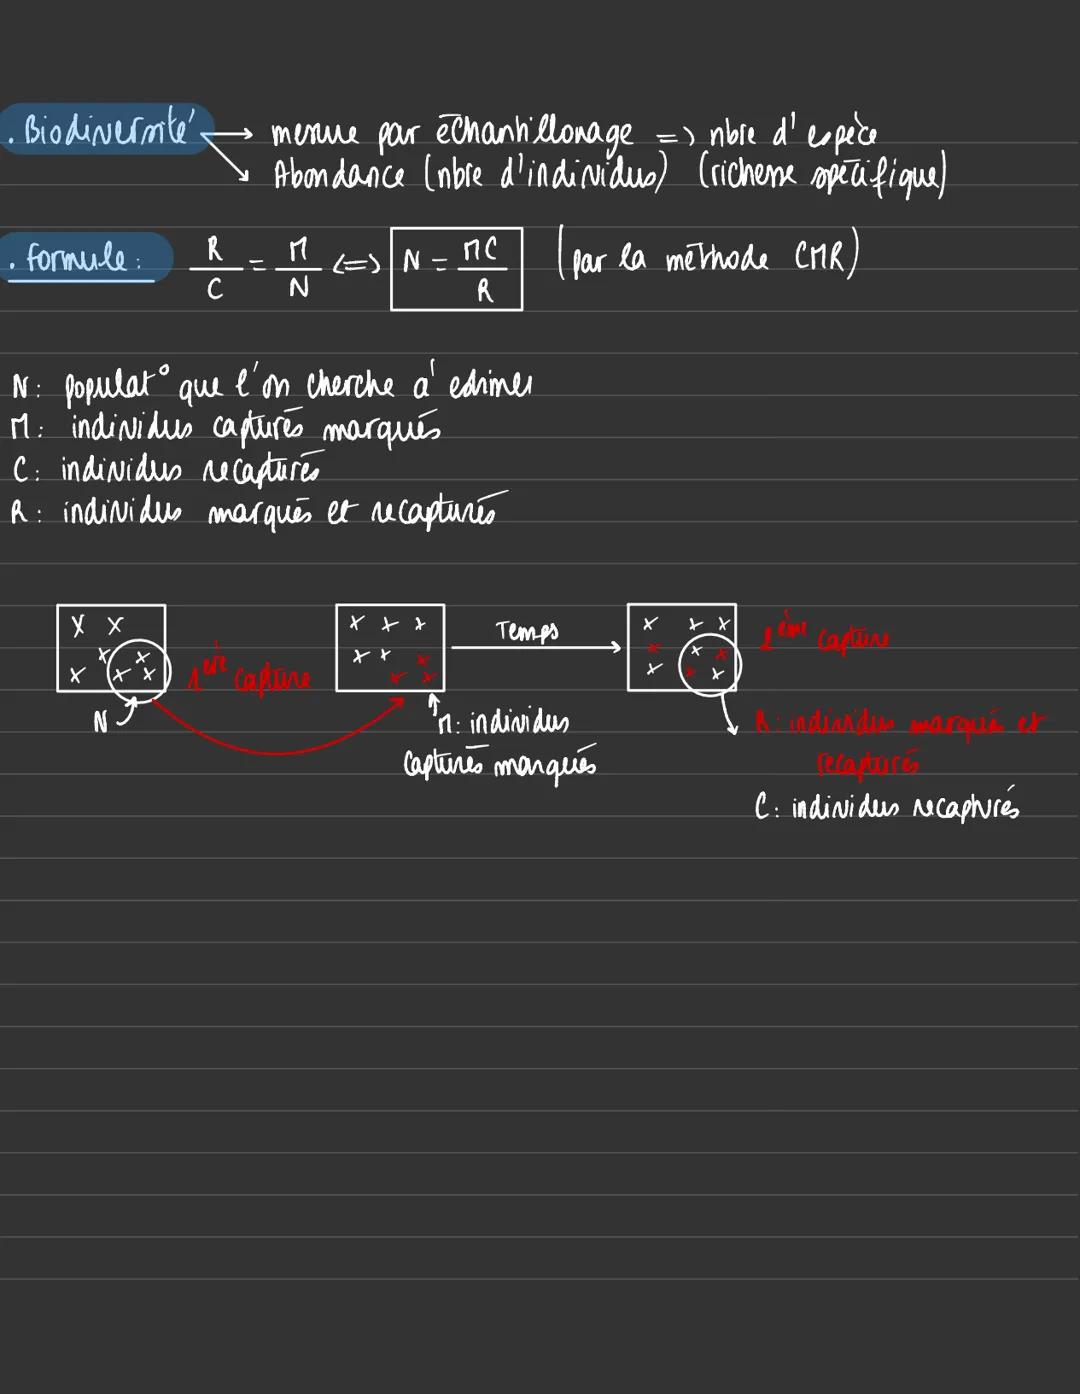 . Biodiversité → mesure par échantillonage => nbre d'espèce
↘ Abondance (nbre d'individus) (richesse spécifique)
. Formule : R/C = M/N <=> N = MC/R (par la méthode CMR)
N : populat° que l'on cherche à estimer
M : individus capturés marqués
C : individus recapturés
R : individus marqués et recapturés
1ère capture
Temps
2ème capture
N
M : individus
capturés marqués
R : individus marqués et
recapturés
C : individus recapturés